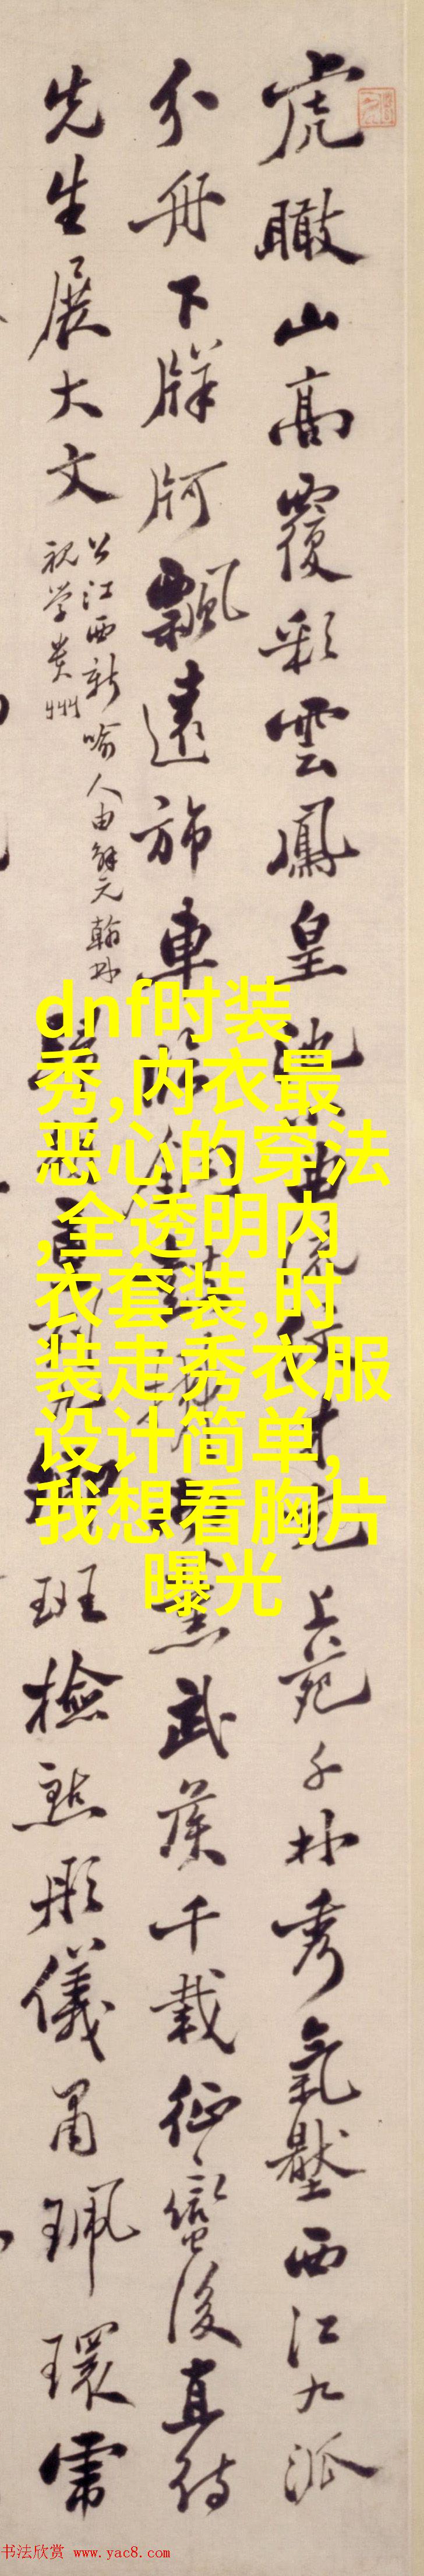 虎瞰山高覆彩雲鳳皇池
上苑千林秀氣壓西江九派
分舟下牂牁飄遠旆車
武侯千載征蠻後直待
先生展大文
公江西新喻人由解元翰林
視学貴州
班檢點彤儀肅珮環需
dnf时装
秀,内衣最
恶心的穿法
,全透明内
衣套装,时
装走秀衣服
设计简单,
我想看胸片
曝光
书法欣赏 www.yac8.com